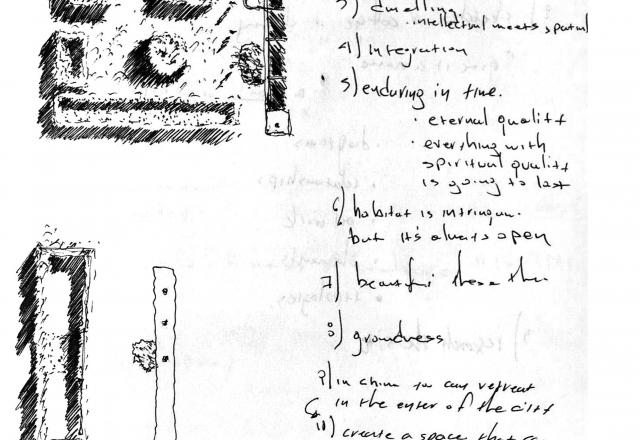 3) dwelling
· intellectual meets spatial
4) Integration
5) enduring in time.
· eternal quality
· everything with
spiritual quality
is going to last
6) habitat is
but it's always open
7) beautiful these
8) groundness
9) in china you can retreat
in the center of the city
10) create a space that